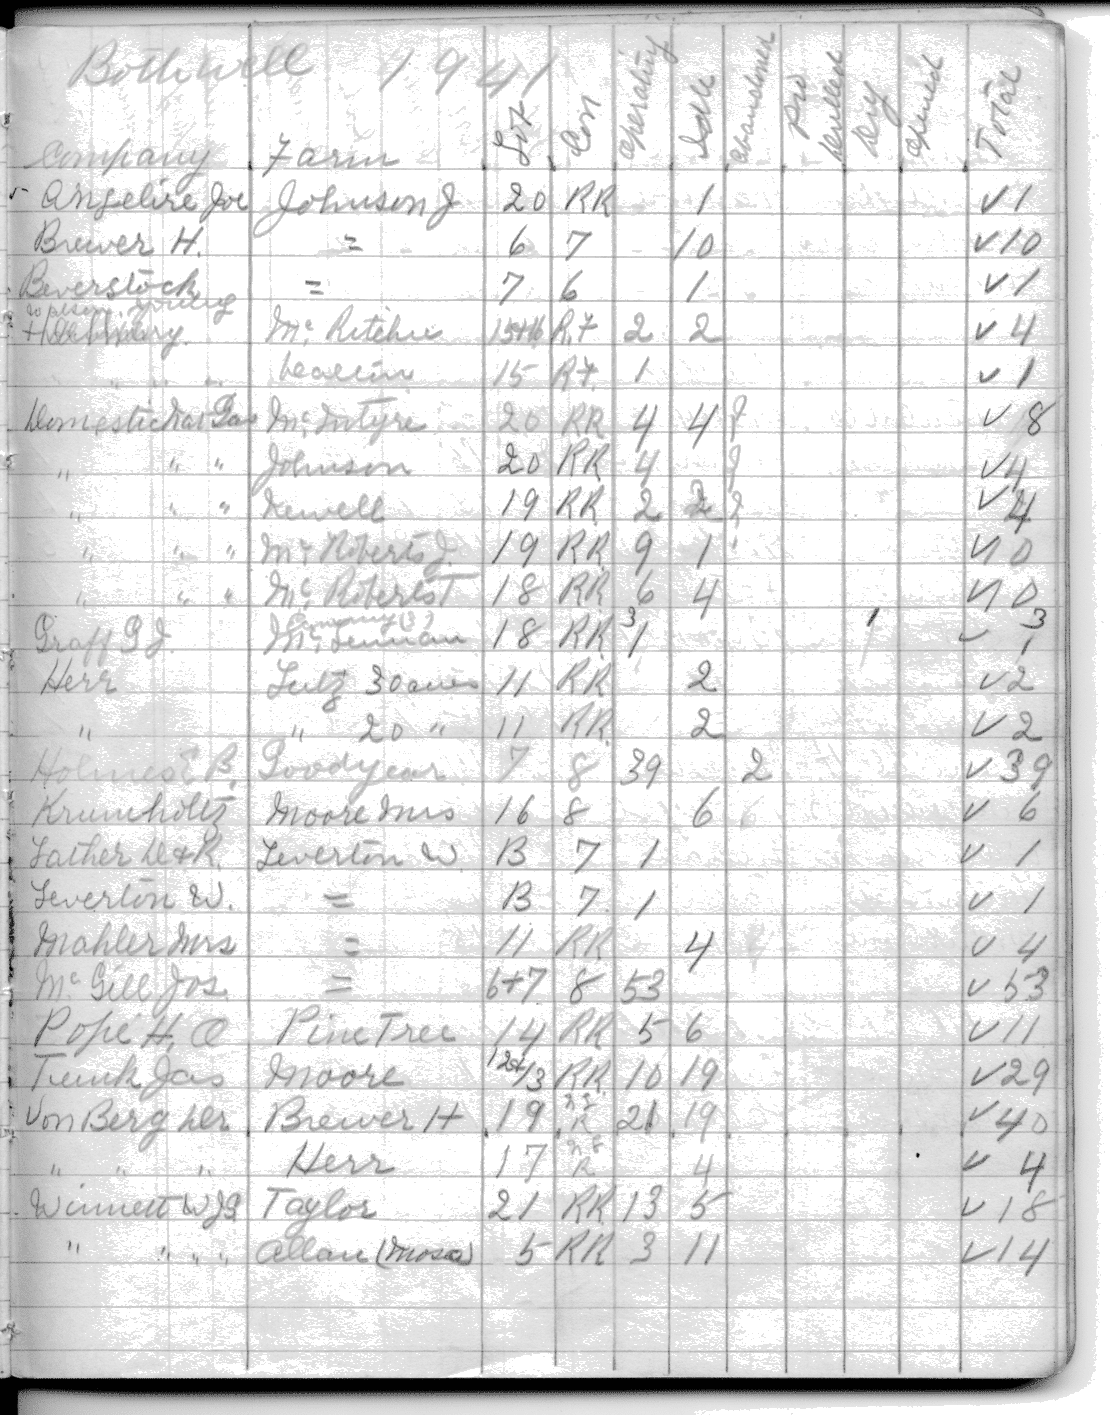 Bothwell 1941
Company Farm Lot Con Operating Idle Abandoned Drilled Dry Opened Total
Angelire Joe Johnson J 20 RR 1 ✓1
Brewer H. = 6 7 10 ✓10
Beverstock = 7 6 1 ✓1
Young
+ Mc Ritchie 15+16 R.7 2 2 ✓4
" " " 15 R7 1 ✓1
Domestic Nat Gas McIntyre 20 RR 4 4 ✓8
" " " Johnson 20 RR 4 ✓4
" " " Newell 19 RR 2 2 ✓4
" " " McRoberts J. 19 RR 9 1 ✓10
" " " McRoberts T 18 RR 6 4 ✓10
Graff G J. 18 RR 3 1 1 ✓ 3
Herr Lutz 30 acres 11 RR 2 ✓2
" " 20 " 11 RR 2 ✓2
Holmes E B. Goodyear 7 8 39 2 ✓39
Krumholtz Moore Mrs 16 8 6 ✓6
Lather D+R. Leverton W 13 7 1 ✓1
Leverton W. = 13 7 1 ✓1
Mahler Mrs = 11 RR 4 ✓4
McGill Jos. = 6+7 8 53 ✓53
Pope H. O Pine Tree 14 RR 5 6 ✓11
Trunk Jas Moore 12+13 RR 10 19 ✓29
Von Berg Der Brewer H 19 R 21 19 ✓40
" " " Herr 17 R 4 ✓4
Winnett WJG Taylor 21 RR 13 5 ✓18
" " " " Allan (Mosa) 5 RR 3 11 ✓14